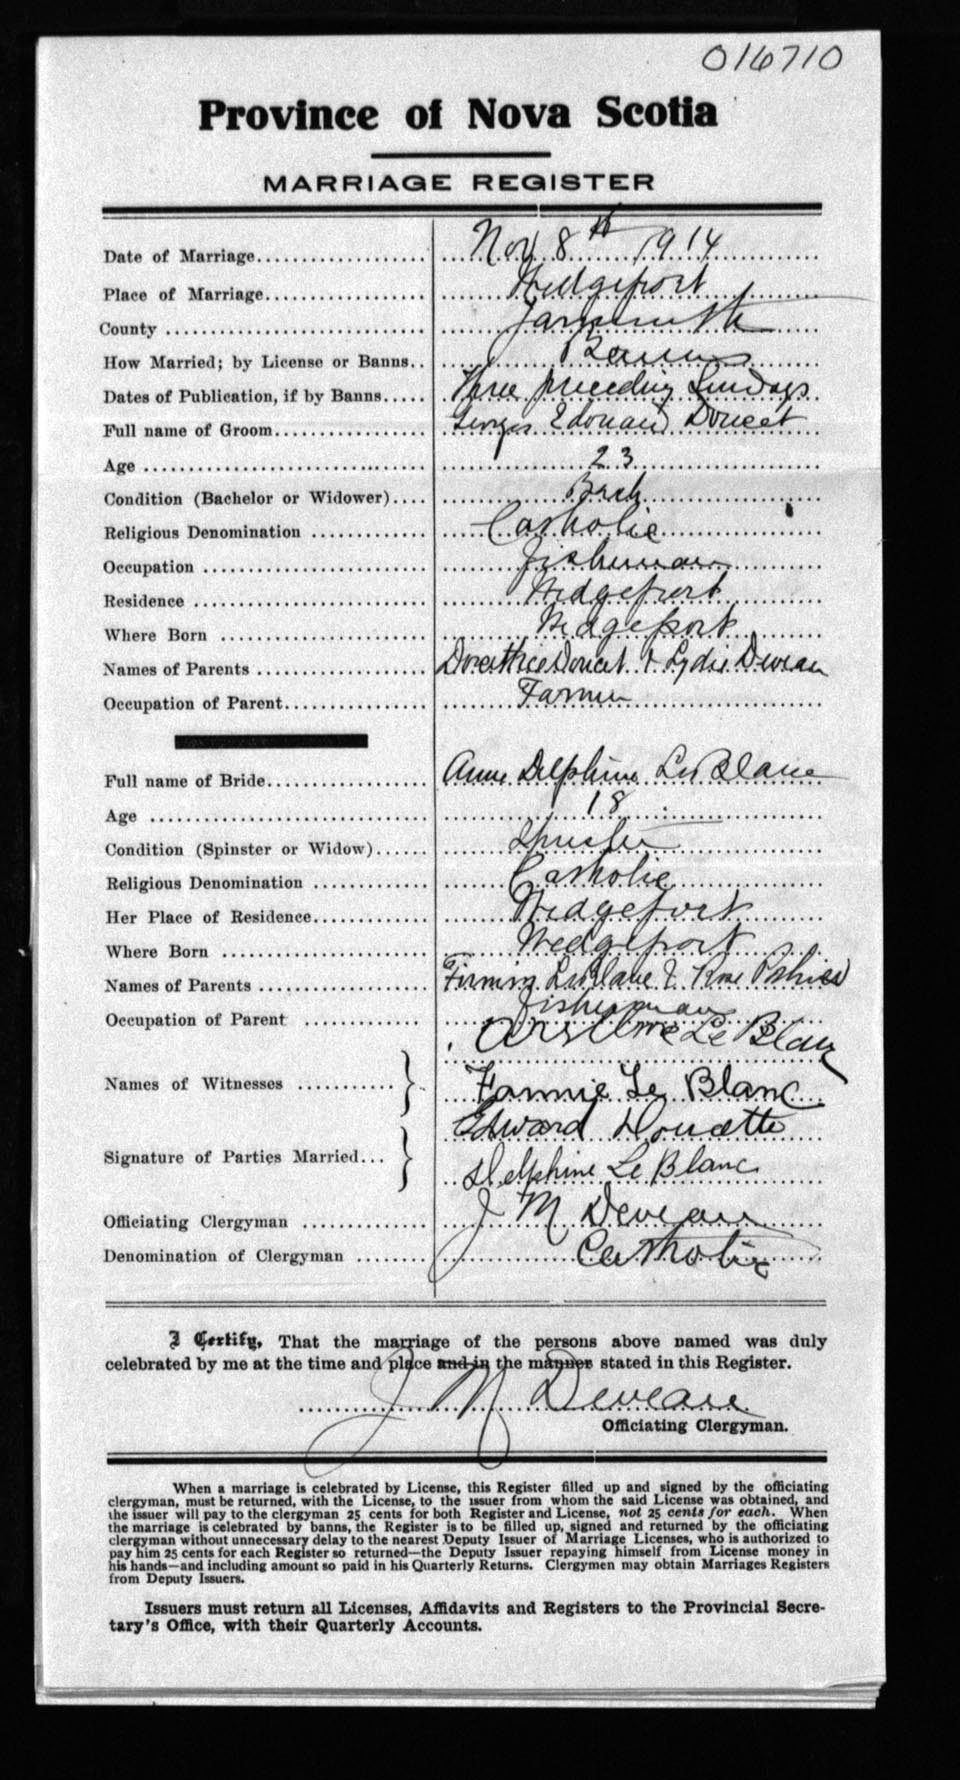 016710
Province of Nova Scotia
MARRIAGE REGISTER
Date of Marriage.................... Nov 8th 1914
Place of Marriage................... Wedgeport
County ............................. Yarmouth
How Married; by License or Banns.. Banns
Dates of Publication, if by Banns..... Three preceding Sundays
Full name of Groom.................. Georges Edouard Doucet
Age ................................ 23
Condition (Bachelor or Widower).... Bach
Religious Denomination ............. Catholic
Occupation ......................... Fisherman
Residence .......................... Wedgeport
Where Born ......................... Wedgeport
Names of Parents ................... Doucet & Lydie Deveau
Occupation of Parent................ Farmer
Full name of Bride.................. Anne Delphine LeBlanc
Age ................................ 18
Condition (Spinster or Widow)...... Spinster
Religious Denomination ............. Catholic
Her Place of Residence............. Wedgeport
Where Born ......................... Wedgeport
Names of Parents ................... Firmin LeBlanc & Rose
Occupation of Parent ............... Fisherman
Le Blanc
Names of Witnesses ........... }
Fannie Le Blanc
Edward Doucette
Signature of Parties Married... }
Delphine Le Blanc
Officiating Clergyman .............. J M Deveau
Denomination of Clergyman ........ Catholic
I Certify, That the marriage of the persons above named was duly
celebrated by me at the time and place and in the manner stated in this Register.
J M Deveau
Officiating Clergyman.
When a marriage is celebrated by License, this Register filled up and signed by the officiating
clergyman, must be returned, with the License, to the issuer from whom the said License was obtained, and
the issuer will pay to the clergyman 25 cents for both Register and License, not 25 cents for each. When
the marriage is celebrated by banns, the Register is to be filled up, signed and returned by the officiating
clergyman without unnecessary delay to the nearest Deputy Issuer of Marriage Licenses, who is authorized to
pay him 25 cents for each Register so returned—the Deputy Issuer repaying himself from License money in
his hands—and including amount so paid in his Quarterly Returns. Clergymen may obtain Marriages Registers
from Deputy Issuers.
Issuers must return all Licenses, Affidavits and Registers to the Provincial Secre-
tary's Office, with their Quarterly Accounts.